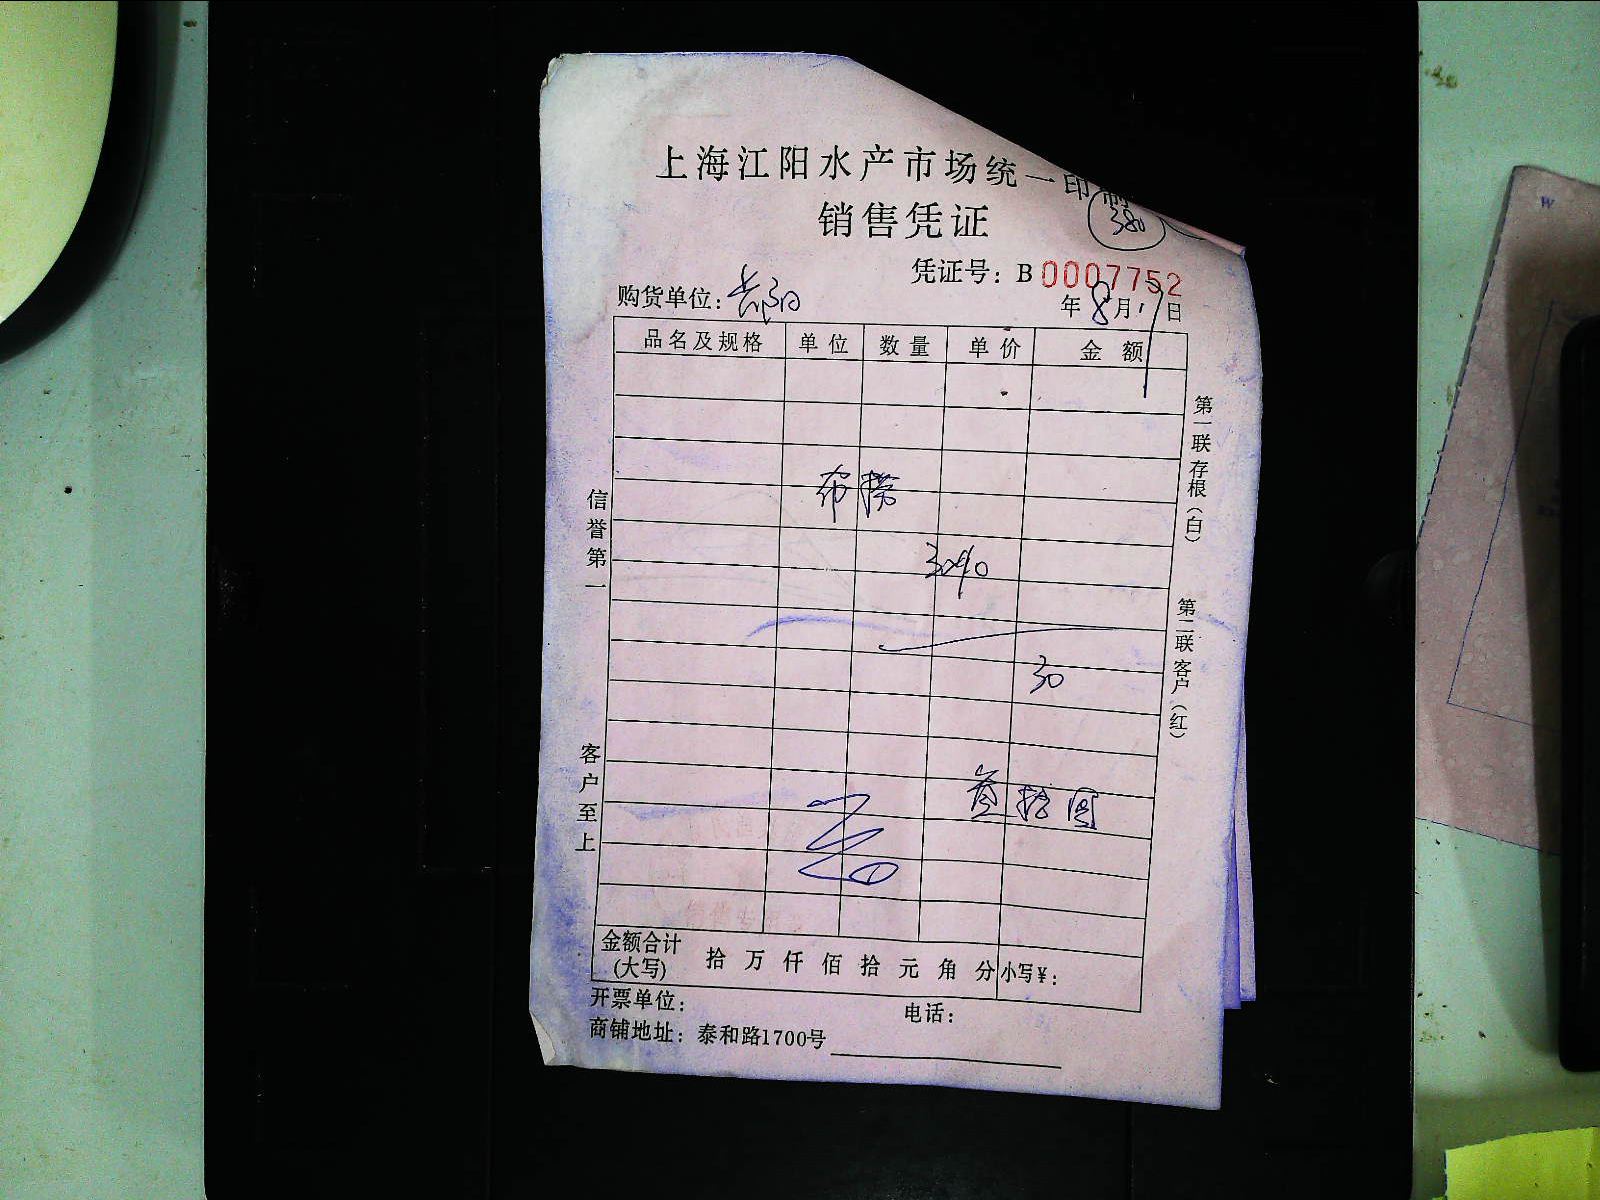 上海江阳水产市场统一印制
380
销售凭证
凭证号：B 0007752
购货单位：
年 8 月 17 日
品名及规格 单位 数量 单价 金额
30
叁拾圆
金额合计(大写) 拾 万 仟 佰 拾 元 角 分 小写¥：
开票单位： 电话：
商铺地址：泰和路1700号
信誉第一
客户至上
第一联 存根（白）
第二联 客户（红）
W